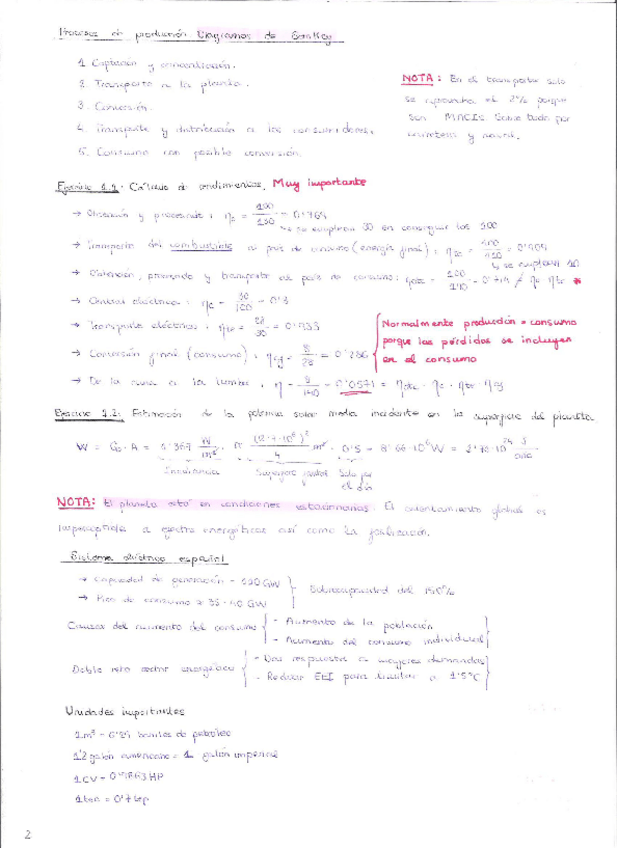 Procesos de producción. Diagramas de Sankey
1. Captación y concentración.
2. Transporte a la planta.
3. Conversión.
4. Transporte y distribución a los consumidores.
5. Consumo con posible conversión.
NOTA: En el transporte solo
se aprovecha el 2% porque
son MACIS. Sobre todo por
y naval.
Ejercicio 1.1. Cálculo de rendimientos. Muy importante
→ Obtención y procesado: ηc = 100/130 = 0'769
↳ se emplean 30 en conseguir los 100
→ Transporte del combustible al país de consumo (energía final):
= 0'909
↳ se emplean 10
→ Obtención, procesado y transporte al país de consumo:
→ Central eléctrica: ηc = 30/100 = 0'3
→ Transporte eléctrico: = 28/30 = 0'933
→ Conversión final (consumo): = 8/28 = 0'286
→ De la cuna a la tumba: η = 8/140 = 0'0571 =
Normalmente producción = consumo
porque las pérdidas se incluyen
en el consumo
Ejercicio 1.2: Estimación de la potencia solar media incidente en la superficie del planeta
W = G₀ · A = 1'367 W/m² · π
Superficie
Solo por
el día
NOTA: El planeta está en condiciones estacionarias. El calentamiento global es
imperceptible a efectos energéticos así como la fosilización.
Sistema eléctrico español
→ Capacidad de generación - 100 GW
→ Pico de consumo → 35 - 40 GW
Sobrecapacidad del 150%
Causas del aumento del consumo
- Aumento de la población
- Aumento del consumo individual
Doble reto sector energético
- Dar respuesta a mayores demandas
- Reducir EEI para limitar a 1'5°C
Unidades importantes
1 m³ = 6'29 barriles de petróleo
1'2 galón americano = 1 galón imperial
1 CV = 0'9863 HP
1 ten = 0'7 tep
2